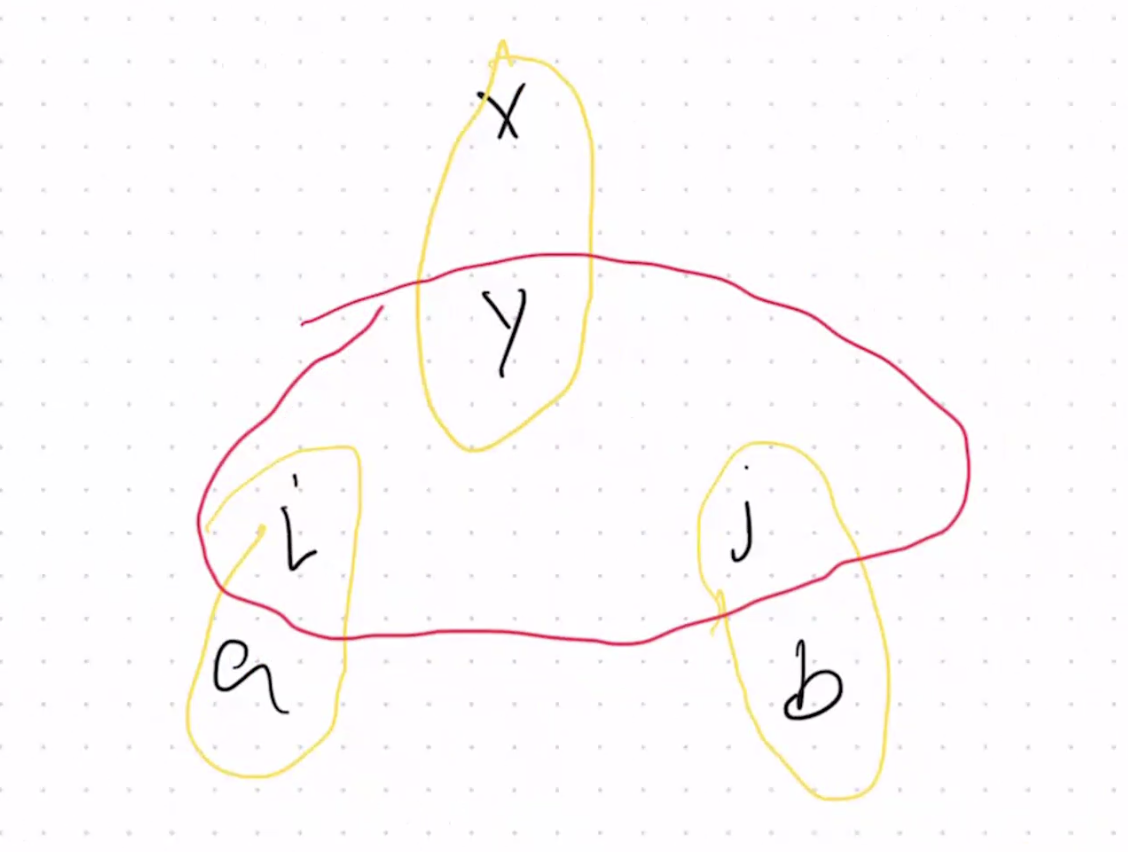 x
y
i j
a b